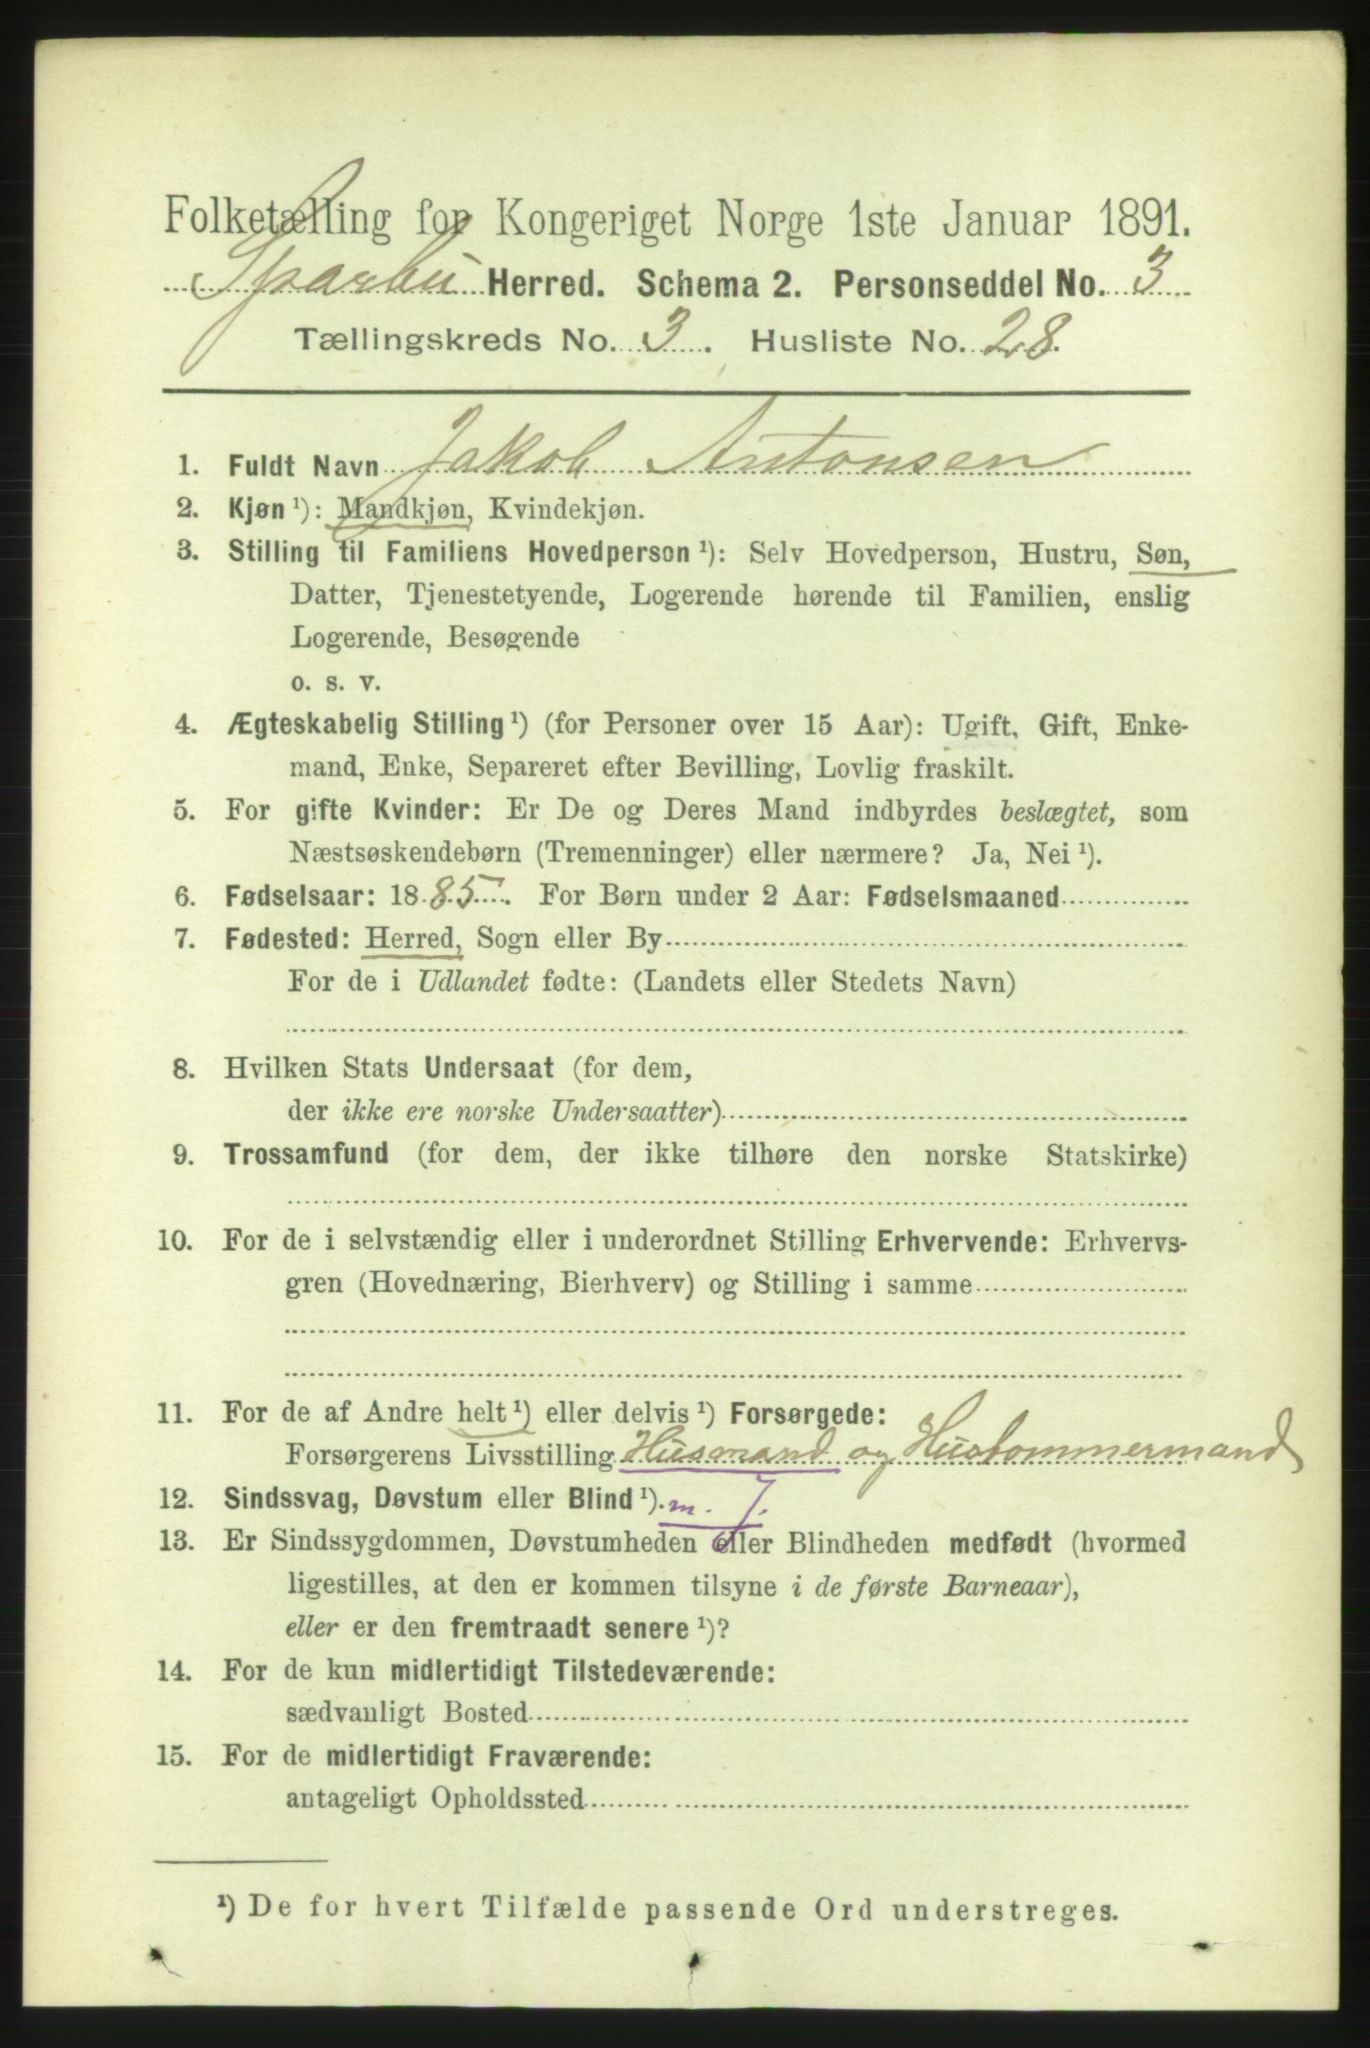 Folketælling for Kongeriget Norge 1ste Januar 1891.
Sparbu Herred. Schema 2. Personseddel No. 3
Tællingskreds No. 3. Husliste No. 28.
1. Fuldt Navn Jakob Antonsen
2. Kjøn ¹): Mandkjøn, Kvindekjøn.
3. Stilling til Familiens Hovedperson ¹): Selv Hovedperson, Hustru, Søn,
Datter, Tjenestetyende, Logerende hørende til Familien, enslig
Logerende, Besøgende
o. s. v.
4. Ægteskabelig Stilling ¹) (for Personer over 15 Aar): Ugift, Gift, Enke-
mand, Enke, Separeret efter Bevilling, Lovlig fraskilt.
5. For gifte Kvinder: Er De og Deres Mand indbyrdes beslægtet, som
Næstsøskendebørn (Tremenninger) eller nærmere? Ja, Nei ¹).
6. Fødselsaar: 1885. For Børn under 2 Aar: Fødselsmaaned
7. Fødested: Herred, Sogn eller By
For de i Udlandet fødte: (Landets eller Stedets Navn)
8. Hvilken Stats Undersaat (for dem,
der ikke ere norske Undersaatter)
9. Trossamfund (for dem, der ikke tilhøre den norske Statskirke)
10. For de i selvstændig eller i underordnet Stilling Erhvervende: Erhvervs-
gren (Hovednæring, Bierhverv) og Stilling i samme
11. For de af Andre helt ¹) eller delvis ¹) Forsørgede:
Forsørgerens Livsstilling Husmand og Hustømmermand
12. Sindssvag, Døvstum eller Blind ¹). m. J.
13. Er Sindssygdommen, Døvstumheden eller Blindheden medfødt (hvormed
ligestilles, at den er kommen tilsyne i de første Barneaar),
eller er den fremtraadt senere ¹)?
14. For de kun midlertidigt Tilstedeværende:
sædvanligt Bosted
15. For de midlertidigt Fraværende:
antageligt Opholdssted
¹) De for hvert Tilfælde passende Ord understreges.